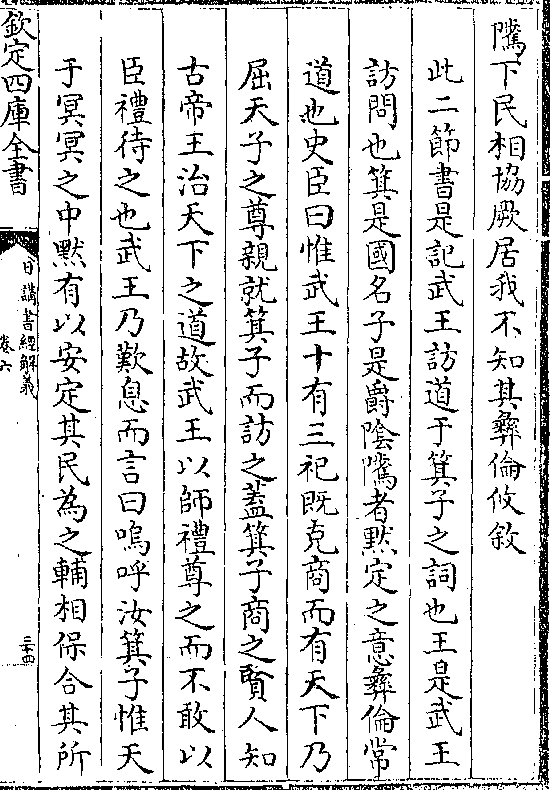 隲下民相協厥居我不知其彝倫攸敘
此二節書是記武王訪道于箕子之詞也王是武王
訪問也箕是國名子是爵隂隲者黙定之意彝倫常
道也史臣曰惟武王十有三祀既克商而有天下乃
屈天子之尊親就箕子而訪之葢箕子商之賢人知
古帝王治天下之道故武王以師禮尊之而不敢以
臣禮待之也武王乃歎息而言曰嗚呼汝箕子惟天
于冥冥之中黙有以安定其民為之輔相保合其所
欽定四庫全書
日講書經解義
卷六
三十四